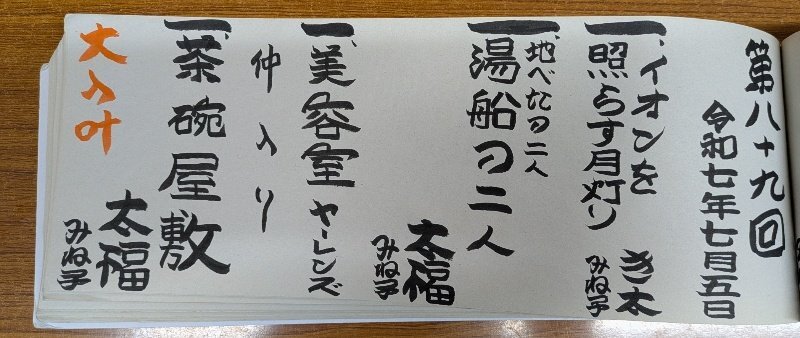 第八十九回
令和七年七月五日
一、イオンを
照らす月灯り
き太
みね子
一、地べたの二人
湯船の二人
太福
みね子
一、美容室 ヤーレンズ
仲入り
一、茶碗屋敷
太福
みね子
大入叶